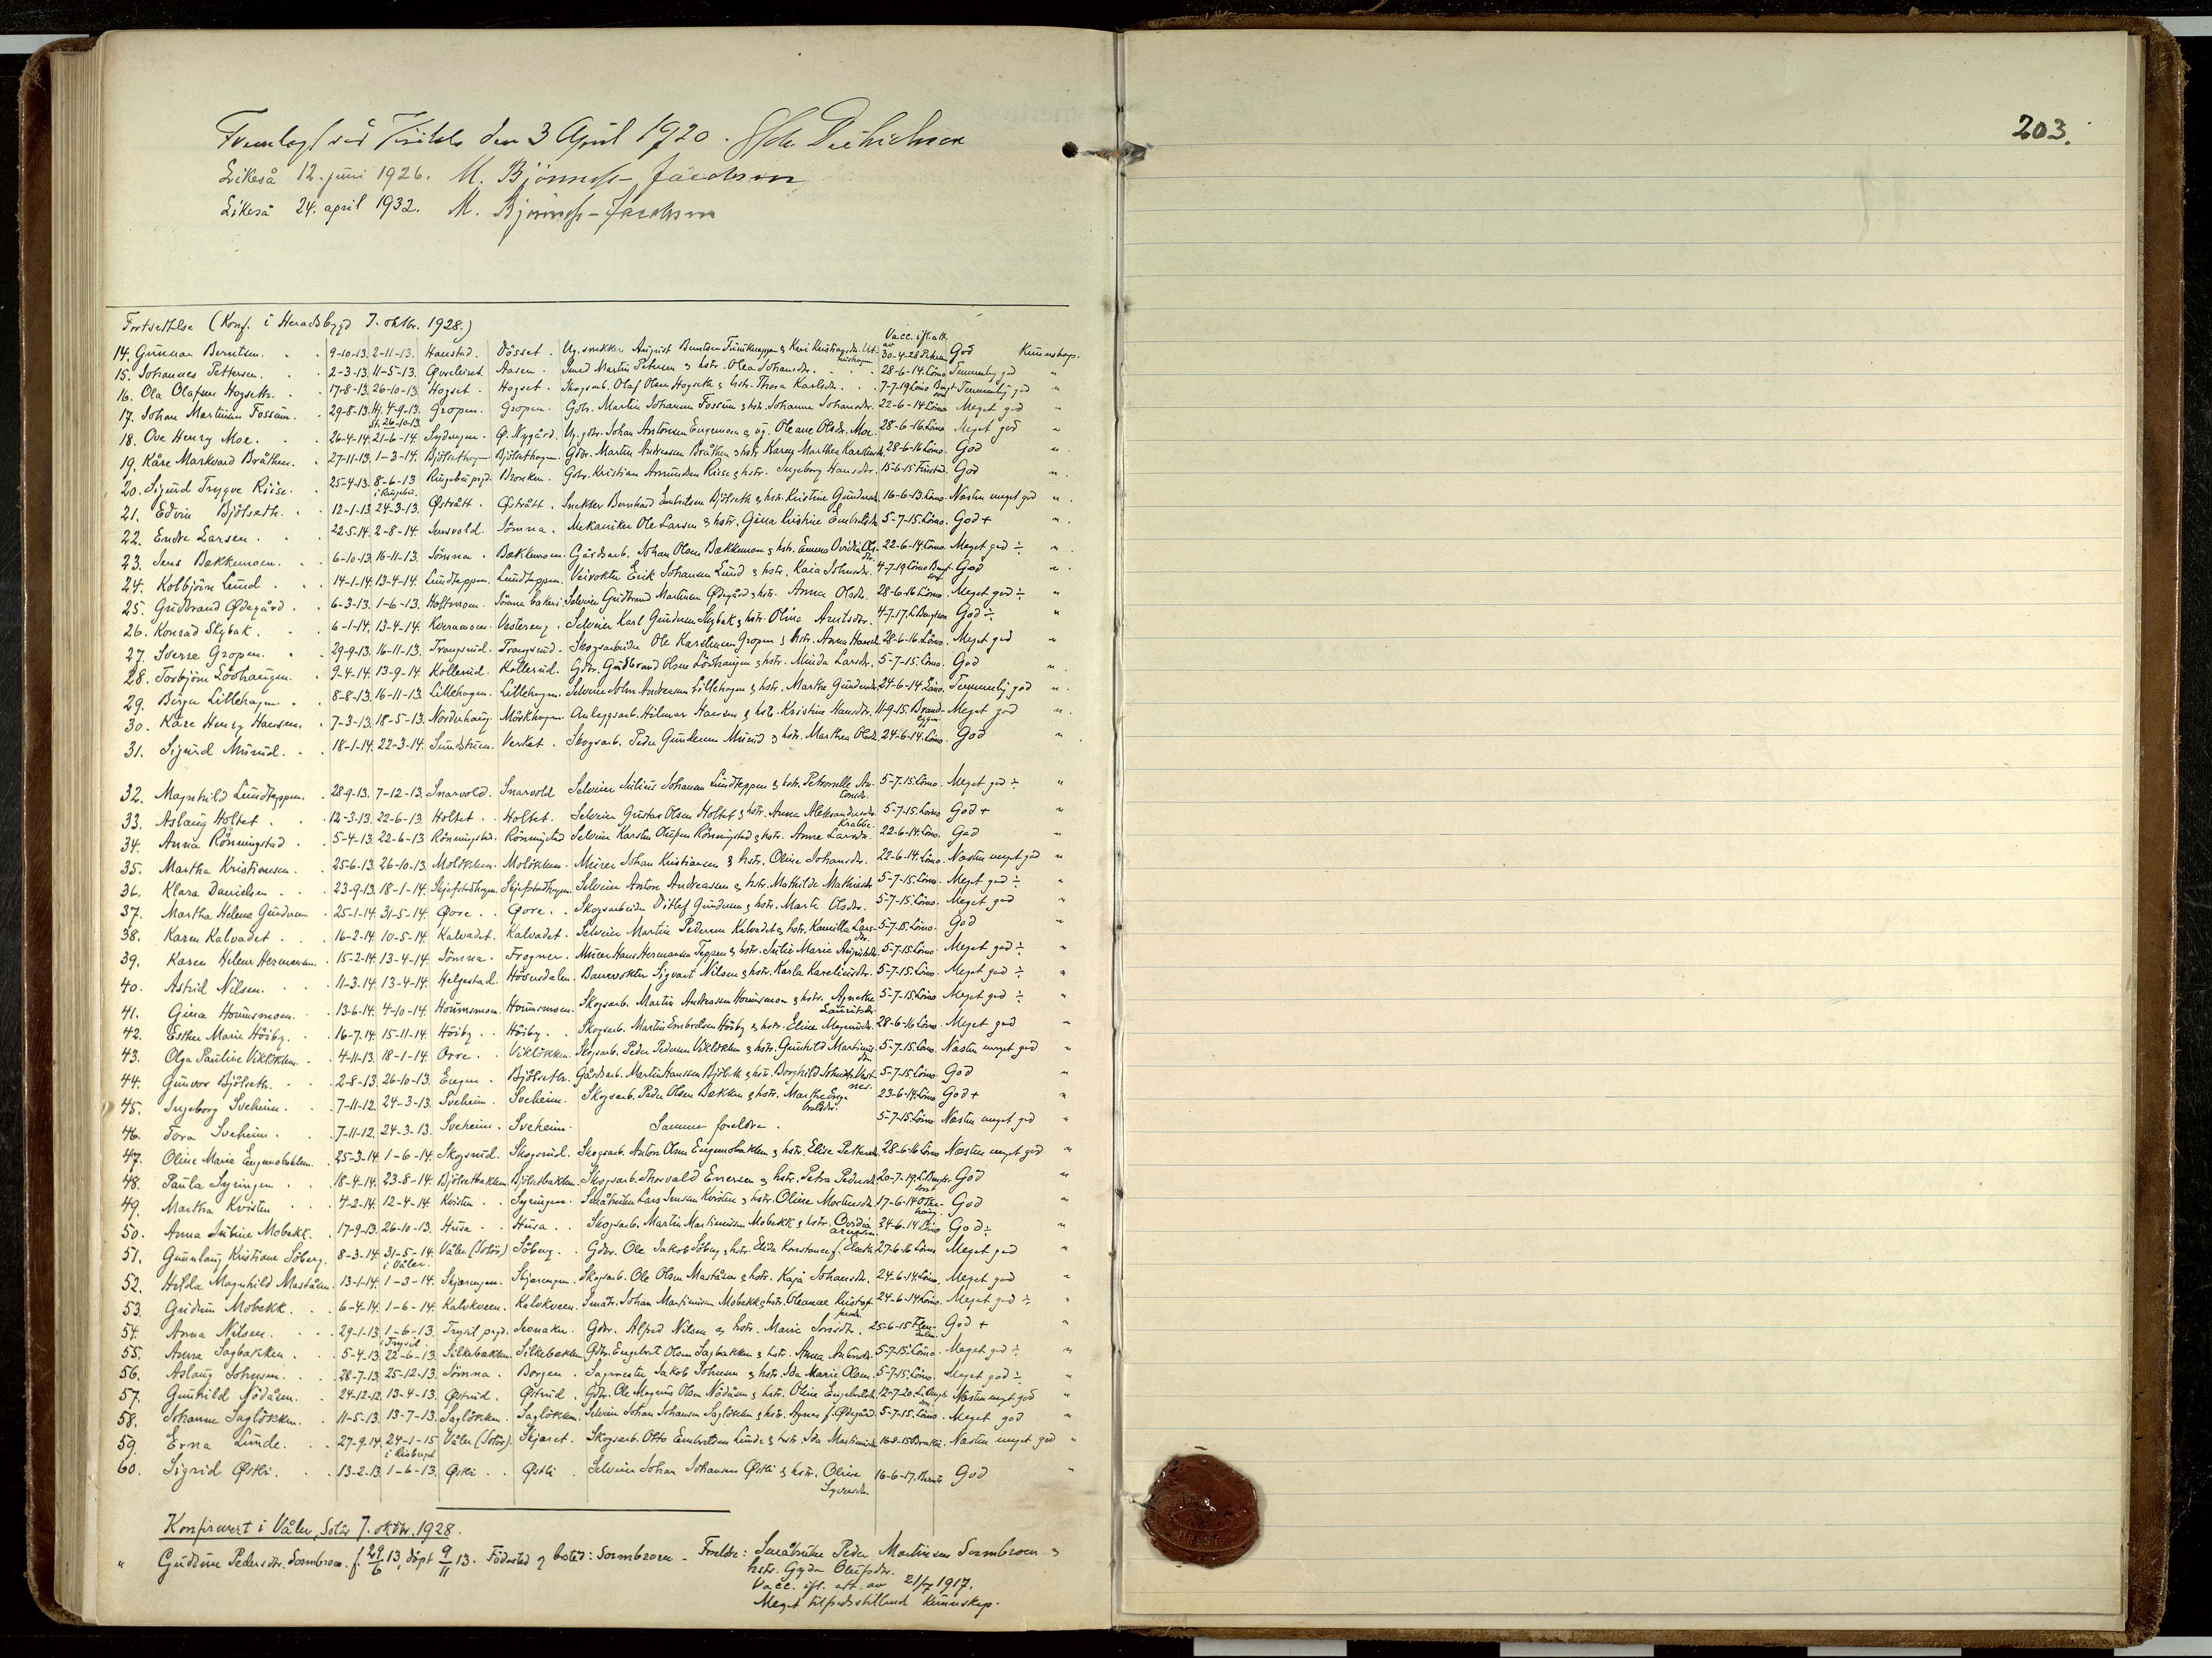 203.
den 3 April 1920.
Likeså 12. juni 1926. M. Bjønness-Jacobsen
Likeså 24. april 1932. M. Bjønness-Jacobsen
Fortsettelse (Konf. i Heradsbygd 7. oktbr. 1928.)
Vacc. ifl. att. av
14. Gunnar Berntsen. 9-10-13. 2-11-13. Haustad. Dösset. Ug. snekker August Berntsen & Kari 30-4-28 God Kunnskap.
15. Johannes Pettersen. 2-3-13. 11-5-13. Qvesleiret. Aasen. Smed Martin Petersen & hstr. Olea Johansdr. 28-6-14. Lömo Temmelig god "
16. Ola Olafsen Hogseth. 17-8-13. 26-10-13. Hogset. Hogset. Skogsarb. Olaf Olsen Hogseth & hstr. Thora Karlsdr. 7-7-19 Lömo Temmelig god "
17. Johan Martinsen Fossum. 29-8-13. Hj. 4-9-13. St. 26-10-13. Gropen. Gropen. Gbr. Martin Johansen Fossum & hstr. Johanne Johansdr. 22-6-14 Lömo Meget god "
18. Ove Henry Moe. 26-4-14. 21-6-14. Ø. Nygård. Ug. gbr. Johan Antonsen Engemoen & ug. Oleane Olsdr. Moe. 28-6-16 Lömo Meget god "
19. Kåre Markvard Bråthen. 27-11-13. 1-3-14. Bjölsethagen Bjölsethagen. Gbr. Martin Andersen Bråthen & hstr. Karen Marthea 28-6-16 Lömo. God "
20. Sigurd Trygve Riise. 25-4-13. 8-6-13 i Ringebu. Ringebu pgd. Bronken. Gbr. Kristian Amundsen Riise & hstr. Ingeborg Hansdr. 15-6-15 God "
21. Edvin Bjölseth. 12-1-13. 24-3-13. Østrått. Østrått. Snekker Bernhard Embretsen Bjölseth & hstr. Kristine Gundersdr. 16-6-13. Lömo. Nesten meget god "
22. Endre Larsen. 22-5-14. 2-8-14. Jensvold. Jömna. Mekaniker Ole Larsen & hstr. Gina Kristine Embretsdr. 5-7-15. Lömo. God + "
23. Jens Bakkemoen. 6-10-13. 16-11-13. Jömna. Bakkemoen. Gårdsarb. Johan Olsen Bakkemoen & hstr. Emma Ovidia Olsdr. 22-6-14 Lömo. Meget god ÷ "
24. Kolbjörn Lund. 14-1-14. 13-4-14. Lundteppen. Lundteppen. Veivokter Erik Johansen Lund & hstr. Kaia Johnsdr. 4-7-19 Lömo God "
25. Gudbrand Ødegård. 6-3-13. 1-6-13. Holtmoen. Jömna bakeri. Selveier Gudbrand Martinsen Ødegård & hstr. Anna Olsdr. 28-6-16 Lömo. Meget god ÷ "
26. Konrad Skybak. 6-1-14. 13-4-14. Kvernmoen. Vestereng. Selveier Karl Gundersen Skybak & hstr. Oline Arntsdr. 4-7-17. God ÷ "
27. Sverre Gropen. 29-9-13. 16-11-13. Trangsrud. Trangsrud. Skogsarbeider Ole Karelius­sen Gropen & hstr. Anna Hansdr. 28-6-16 Lömo. Meget god "
28. Torbjörn Lövhaugen. 9-4-14. 13-9-14. Kollerud. Kollerud. Gbr. Gudbrand Olsen Lövhaugen & hstr. Minda Larsdr. 5-7-15. Lömo. God "
29. Birger Lillehagen. 8-8-13. 16-11-13. Lillehagen. Lillehagen. Selveier John Andersen Lillehagen & hstr. Marthe Gundersdr. 24-6-14 Lömo. Temmelig god "
30. Kåre Henry Hansen. 7-3-13. 18-5-13. Nordenhaug. Mörkhagen. Anleggsarb. Hilmar Hansen & hstr. Kristine Hansdr. 11-9-15. Meget god "
31. Sigurd Musrud. 18-1-14. 22-3-14. Sundstuen. Verket. Skogsarb. Peder Gundersen Musrud & hstr. Marthea Olsdr. 24-6-14. Lömo. God "
32. Magnhild Lundteppen. 28-9-13. 7-12-13. Snarvold. Snarvold Selveier Julius Johansen Lundteppen & hstr. Petronelle Antonsdr. 5-7-15. Lömo. Meget god ÷ "
33. Aslaug Holtet. 12-3-13. 22-6-13 Holtet. Holtet. Selveier Gustav Olsen Holtet & hstr. Anna Aleksandersdr. Krabbe. 5-7-15. Lömo God + "
34. Anna Rönningstad. 5-4-13. 22-6-13 Rönningstad. Rönningstad Selveier Karsten Olufsen Rönningstad & hstr. Anne Larsdr. 22-6-14. Lömo. God "
35. Martha Kristiansen. 25-6-13. 26-10-13. Molökken. Molökken. Murer Johan Kristiansen & hstr. Oline Johansdr. 22-6-14. Lömo. Nesten meget god "
36. Klara Danielsen. 23-9-13. 18-1-14. Skjefstadhagen. Skjefstadhagen. Selveier Anton Andreassen & hstr. Mathilde Mathisdr. 5-7-15. Lömo. Meget god ÷ "
37. Martha Helene Gundersen. 25-1-14. 31-5-14. Qore. Qore. Skogsarbeider Ditlef Gundersen & hstr. Marte Olsdr. 5-7-15. Lömo. Meget god "
38. Karen Kalvadet. 16-2-14. 10-5-14. Kalvadet. Kalvadet. Selveier Martin Pedersen Kalvadet & hstr. Kamilla Larsdr. 5-7-15. Lömo. God "
39. Karen Helene Hermansen. 15-2-14. 13-4-14. Jömna. Frogner. Murer Hans Hermansen Teppen & hstr. Julie Marie Augustsdr. 5-7-15. Lömo. Meget god ÷ "
40. Astrid Nilsen. 11-3-14. 13-4-14. Helgestad. Hovensdalen. Banevokter Sigvart Nilsen & hstr. Karla Kareliusdr. 5-7-15. Lömo. Meget god ÷ "
41. Gina Hornsmoen. 13-6-14. 4-10-14. Hornsmoen. Hornsmoen. Skogsarb. Martin Andreassen Hornsmoen & hstr. Agnethe Lauritsdr. 5-7-15. Lömo Meget god ÷ "
42. Esther Marie Höiby. 16-7-14. 15-11-14. Höiby. Höiby. Skogsarb. Martin Embretsen Höiby & hstr. Eline Magnusdr. 28-6-16 Lömo. Meget god "
43. Olga Pauline Viklökken. 4-11-13. 18-1-14. Orre. Viklökken. Skogsarb. Peder Pedersen Viklökken & hstr. Gunhild Martinusdtr. 5-7-15. Lömo. Nesten meget god "
44. Gunvor Bjölseth. 2-8-13. 26-10-13. Engen. Bjölseth. Gårdsarb. Martin Hanssen Bjölseth & hstr. Borghild 5-7-15. Lömo God "
45. Ingeborg Sveheim. 7-11-12. 24-3-13. Sveheim. Sveheim. Skogsarb. Peder Olsen Bakken & hstr. Marthe 23-6-14. Lömo God + "
46. Tora Sveheim. 7-11-12. 24-3-13. Sveheim. Sveheim. Samme foreldre. 5-7-15. Lömo Nesten meget god "
47. Oline Marie Engmobakken. 25-3-14. 1-6-14. Skogsrud. Skogsrud. Skogsarb. Anton Olsen Engmobakken & hstr. Elise Pettersdr. 28-6-16 Lömo Nesten meget god "
48. Paula Syringen. 18-4-14. 23-8-14. Bjölsetbakken. Bjölsetbakken. Skogsarb. Thorvald Enersen & hstr. Petra Pedersdr. 20-7-19. God "
49. Martha Kvisten 4-2-14. 12-4-14. Kvisten. Syringen. Småbruker Lars Jensen Kvisten & hstr. Oline Mortensdr. 17-6-14 God "
50. Anna Jubine Mobekk. 17-9-13. 26-10-13. Husa. Husa. Skogsarb. Martin Martinusen Mobekk & hstr. Ovidia 24-6-14 Lömo God ÷ "
51. Gunnlaug Kristiane Söberg. 8-3-14. 31-5-14. i Våler. Våler (Solör) Söberg. Gbr. Ole Jakob Söberg & hstr. Elida Konstance f. 27-6-16 Lömo Meget god "
52. Hilda Magnhild Maståen. 13-1-14. 1-3-14. Skjerengen. Skjerengen. Skogsarb. Ole Olsen Maståen & hstr. Kaja Johansdr. 24-6-14. Lömo. Meget god "
53. Gudrun Mobekk. 6-4-14. 1-6-14. Kalvkveen. Kalvkveen. Småbr. Johan Martinusen Mobekk & hstr. Oleanne 24-6-14 Lömo. Meget god ÷ "
54. Anna Nilsen. 29-1-13. 1-6-13. Trysil. Trysil pgd. Jernaker. Gbr. Alfred Nilsen & hstr. Marie 25-6-15 God + "
55. Anna Sagbakken. 5-4-13. 22-6-13. Silkebakken. Silkebakken. Gbr. Engebret Olsen Sagbakken & hstr. Anna 5-7-15. Lömo. Meget god ÷ "
56. Aslaug Johnsen. 28-7-13. 25-12-13. Jömna. Borgen. Sagmester Jakob Johnsen & hstr. Ida Marie Olsen. 5-7-15. Lömo. Meget god ÷ "
57. Gunhild Nödåsen. 24-12-12. 13-4-13. Østrud. Østrud. Gbr. Ole Magnus Olsen Nödåsen & hstr. Oline Engebretsdr. 12-7-20. Nesten meget god "
58. Johanne Saglökken. 11-5-13. 13-7-13. Saglökken. Saglökken. Selveier Johan Johansen Saglökken & hstr. Agnes f. Ødegård. 5-7-15. Lömo. Meget god "
59. Erna Linde. 27-9-14. 24-1-15 i Våler (Solör). Skjæret. Skogsarb. Otto Embretsen Linde & hstr. Ida Martinusdr. 16-8-15 Nesten meget god "
60. Sigrid Østli. 13-2-13. 1-6-13. Østli. Østli. Selveier Johan Johansen Østli & hstr. Oline Syversdtr. 16-6-17. God "
Konfirmert i Våler, Solör 7. oktbr. 1928.
" Gudrun Pedersdtr. Sormbroen. f. 29/6 13, döpt 9/11 13. Födested og bosted: Sormbroen - Foreldre: Småbruker Peder Martinsen Sormbroen &
hstr. Gyda Olufsdtr.
Vacc. ifl. att. av 21/7 1917.
Meget tilfredsstillende kunnskap.